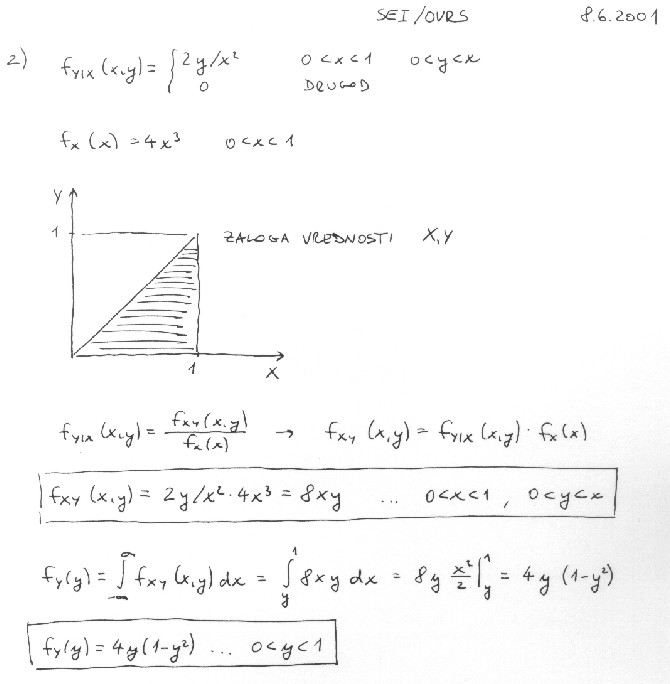 SEI/OVRS 8.6.2001
2) f_{Y|X}(x,y) = { 2y/x² 0<x<1 0<y<x
0 DRUGOD
f_X(x) = 4x³ 0<x<1
Y
1 ZALOGA VREDNOSTI X,Y
1
X
f_{Y|X}(x,y) = f_{XY}(x,y)/f_X(x) → f_{XY}(x,y) = f_{Y|X}(x,y) · f_X(x)
f_{XY}(x,y) = 2y/x² · 4x³ = 8xy ... 0<x<1, 0<y<x
f_Y(y) = ∫_{-∞}^{∞} f_{XY}(x,y) dx = ∫_y^1 8xy dx = 8y x²/2 |_y^1 = 4y (1-y²)
f_Y(y) = 4y(1-y²) ... 0<y<1